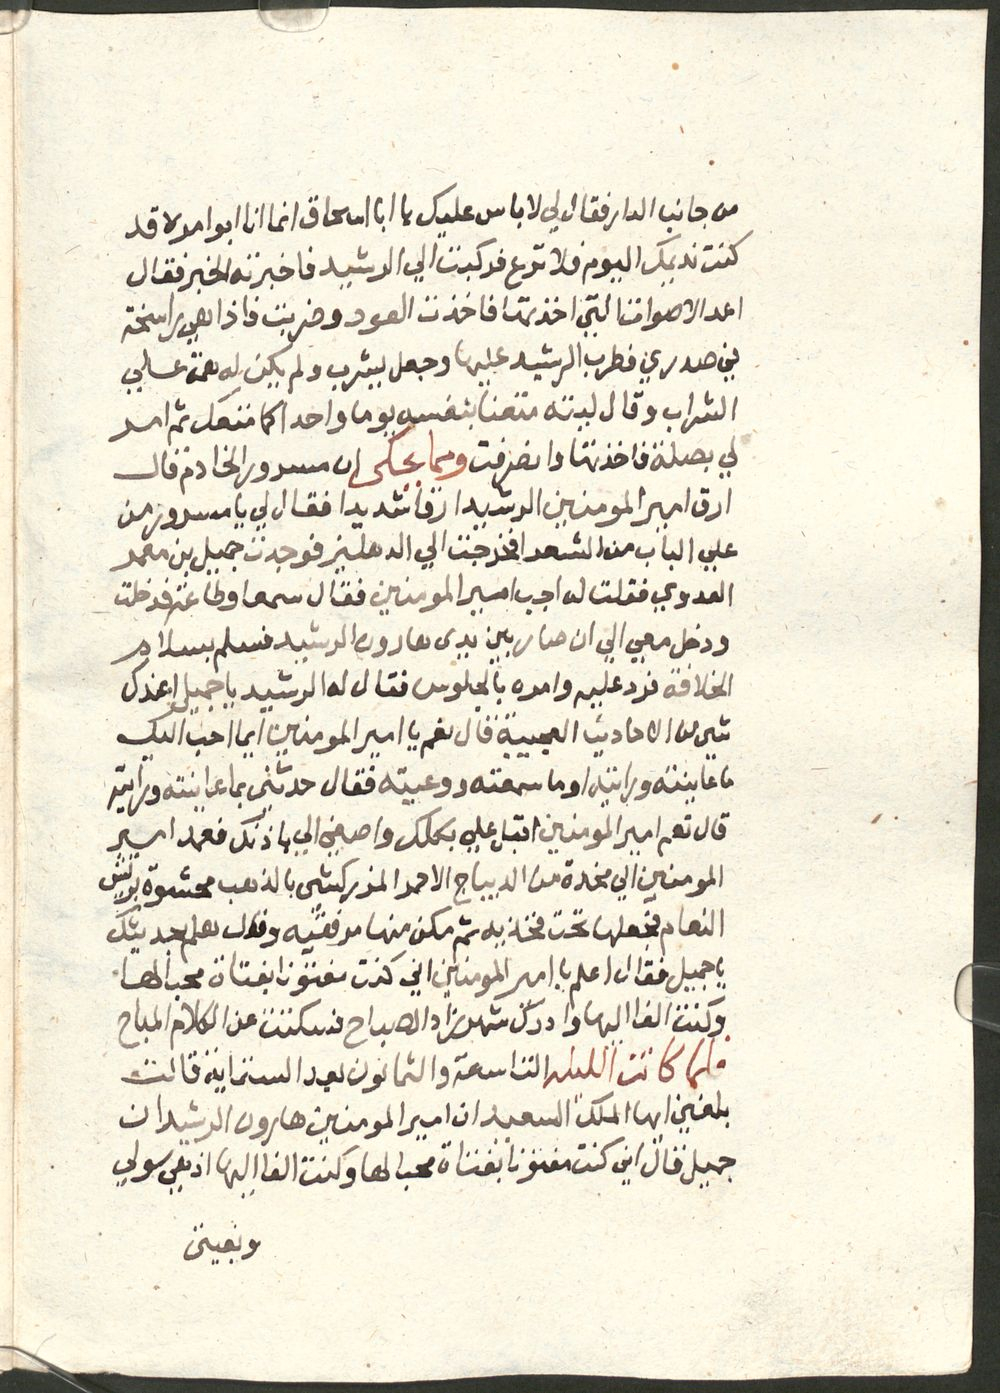 من جانب الدار فقال لي لا باس عليك يا ابا اسحاق انما انا ابوا مرة قد
كنت نديمك اليوم فلا ترع فركبت الي الرشيد فاخبرته الخبر فقال
اعد الاصوات التي اخذتها فاخذت العود وضربت فاذا هي راسخة
في صدري فطرب الرشيد عليها وجعل يشرب ولم يكن له همة علي
الشراب وقال ليته متعنا بنفسه يوما واحدا كما متعك ثم امر
لي بصلة فاخذتها وانصرفت ومما يحكى ان مسرور الخادم قال
ارق امير المومنين الرشيد ارقا شديدا فقال لي يا مسرور من
علي الباب من الشعرا فخرجت الي الدهليز فوجدت جميل بن معمر
العدوي فقلت له اجب امير المومنين فقال سمعا وطاعة فدخلت
ودخل معي الي ان صار بين يدي هارون الرشيد فسلم بسلام
الخلافة فرد عليه وامره بالجلوس فقال له الرشيد يا جميل اعندك
شي من الاحاديث العجيبة قال نعم يا امير المومنين ايما احب اليك
ما عاينته ورايته او ما سمعته ووعيته فقال حدثني بما عاينته ورايته
قال نعم امير المومنين اقبل علي بكلك واصغي الي باذنك فعمد امير
المومنين الي مخدة من الديباج الاحمر المزركشي بالذهب محشوة بريش
النعام فجعلها تحت فخذيه ثم مكن منها مرفقيه وقال هلم بحديثك
يا جميل فقال اعلم يا امير المومنين اني كنت مفتونا بفتاة محبا لها
وكنت الفا اليها وادرك شهرزاد الصباح فسكتت عن الكلام المباح
فلما كانت الليله التاسعة والثمانون بعد الستماية قالت
بلغني ايها الملك السعيد ان امير المومنين هارون الرشيد ان
جميل قال اني كنت مفتونا بفتاة محبا لها وكنت الفا اليها اذ هي سولي
وبغيتي